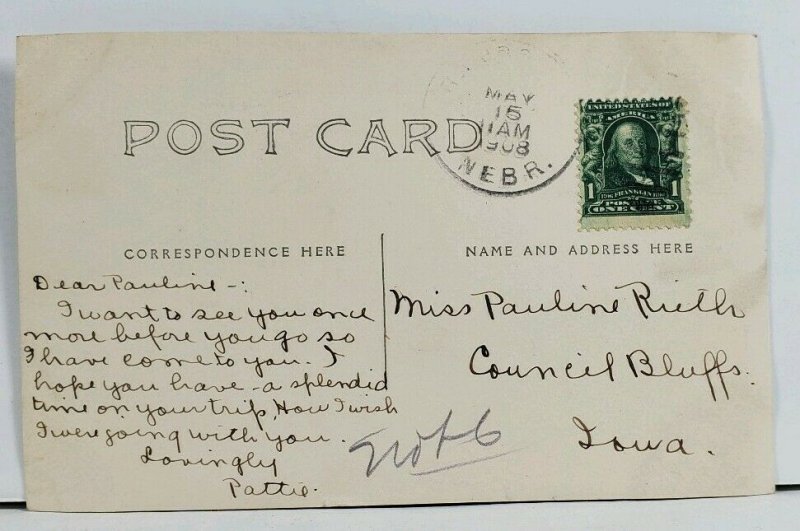 POST CARD
MAY
15
11AM
1908
NEBR.
UNITED STATES OF
AMERICA
1 FRANKLIN 1
POSTAGE
ONE CENT
CORRESPONDENCE HERE
NAME AND ADDRESS HERE
Dear Pauline -:
I want to see you once
more before you go so
I have come to you. I
hope you have a splendid
time on your trip, How I wish
I were going with you.
Lovingly
Pattie.
Miss Pauline Rieth
Council Bluffs.
Iowa.